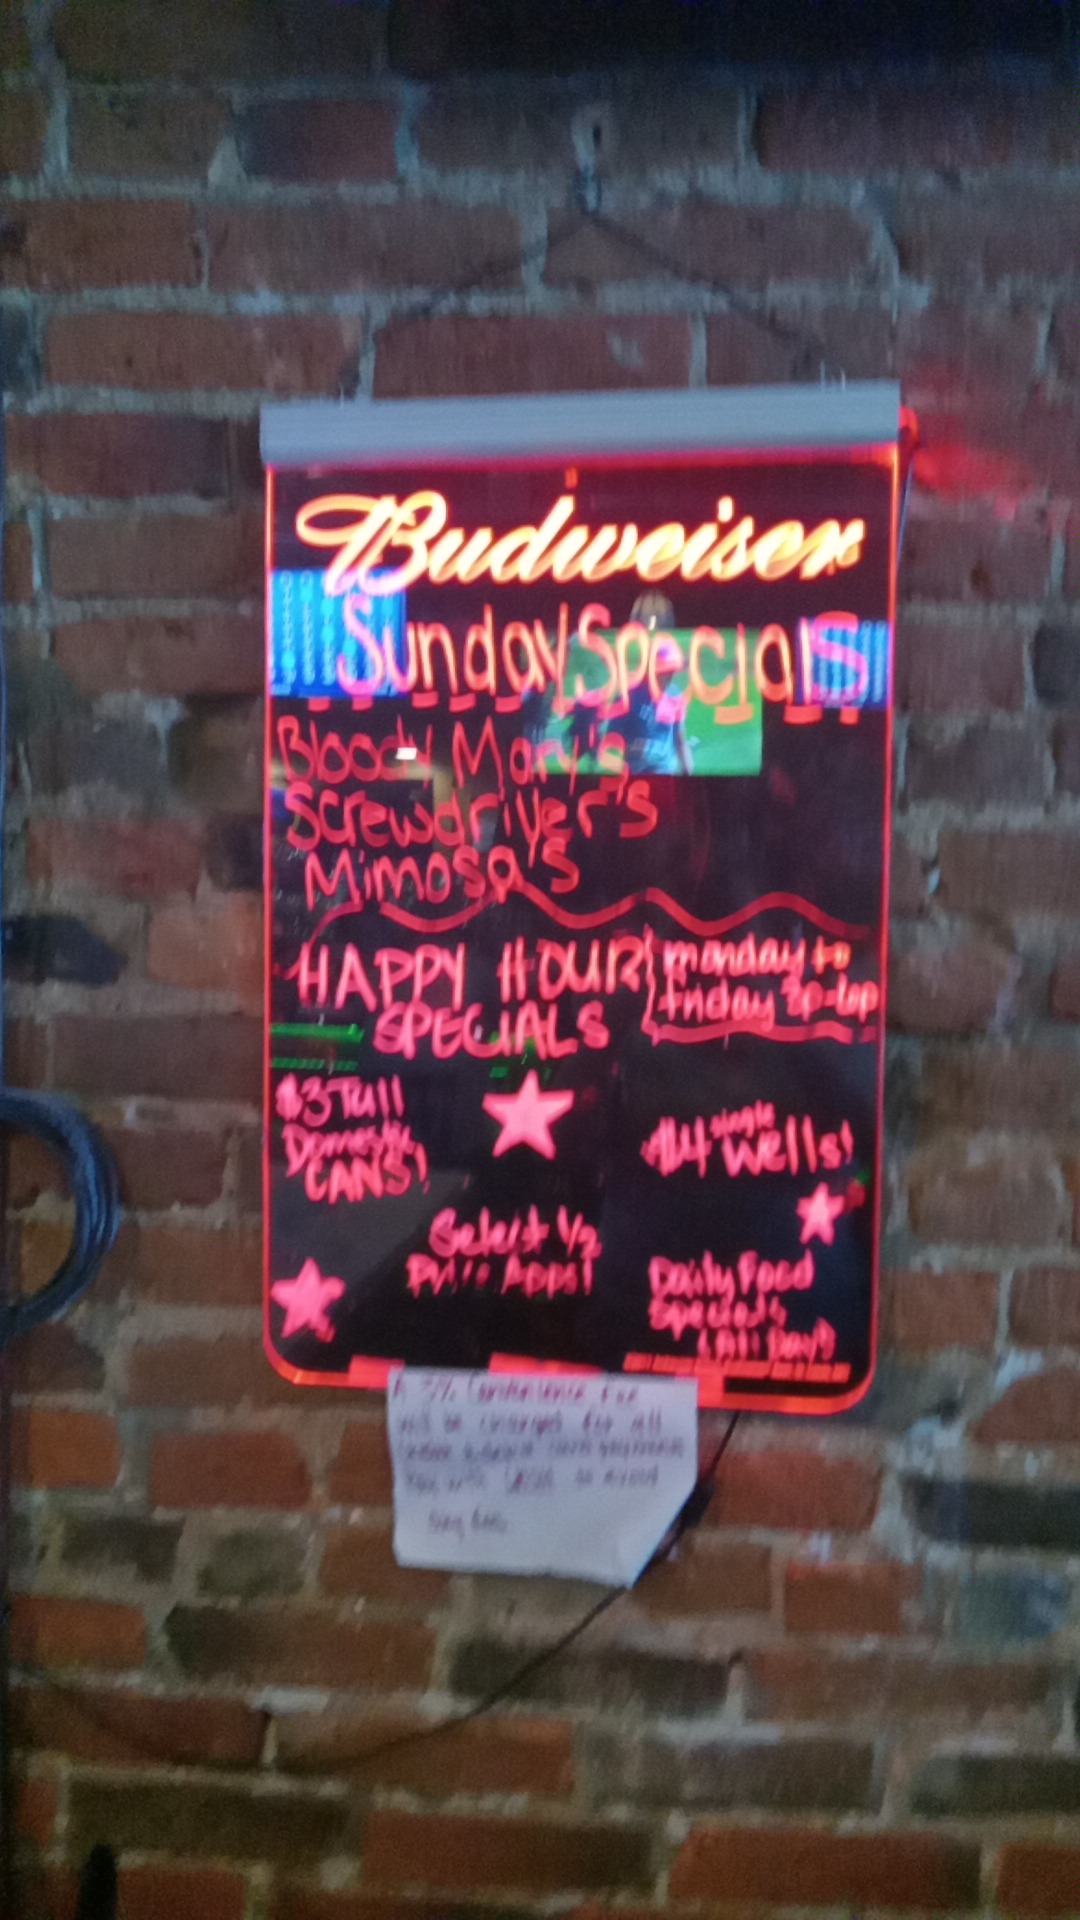 Budweiser
Sunday Specials
Bloody Mary's
Screwdriver's
Mimosa's
HAPPY HOUR
SPECIALS
monday to
friday 3p-6p
$3 Tall
Domestic
CANS!
$4 single Wells!
Select 1/2
Price Apps!
Daily Food
Specials
A 3% Convenience Fee
will be charged for all